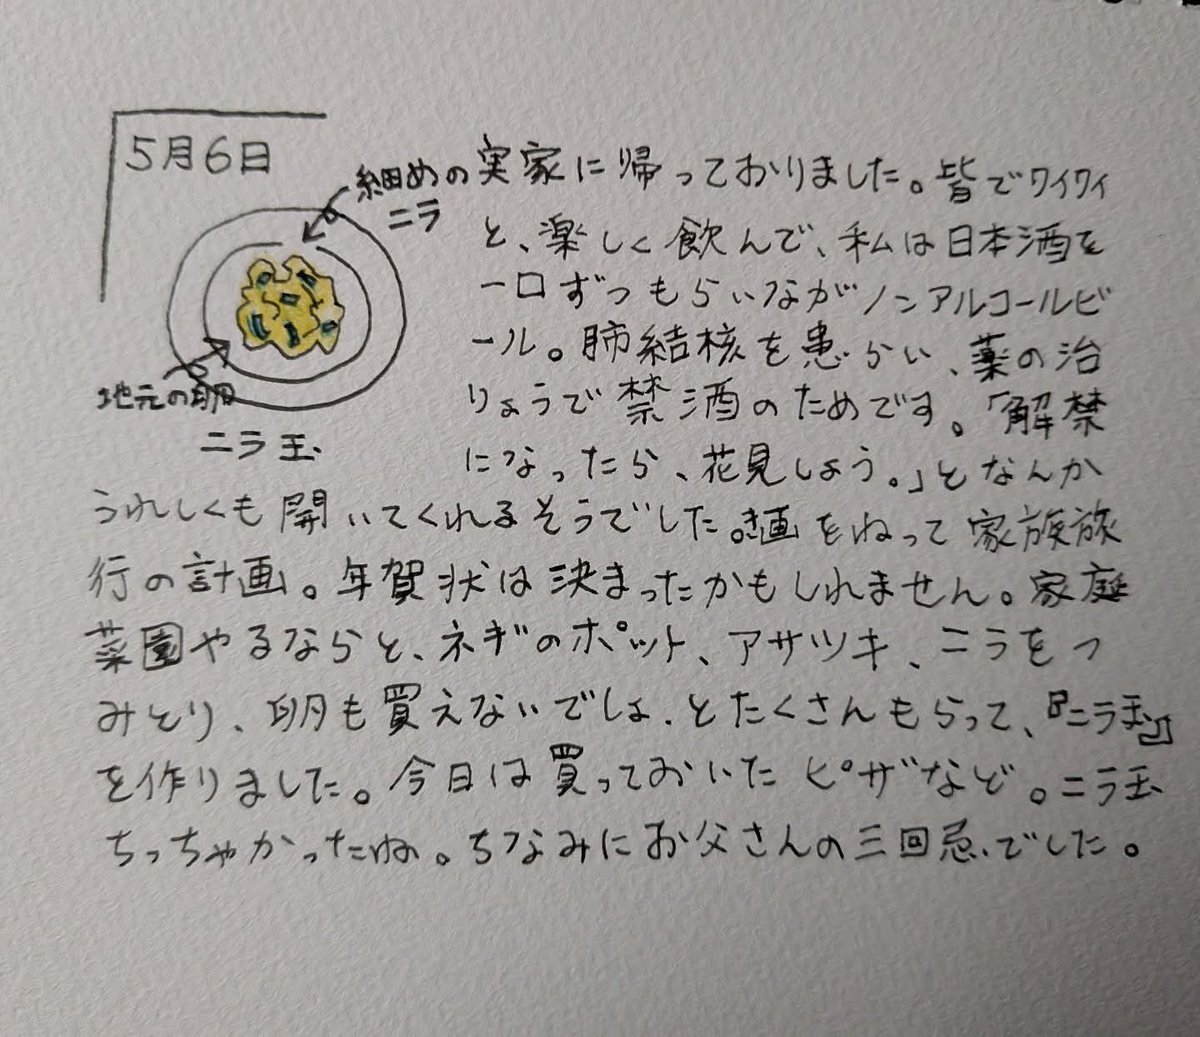 5月6日
細めの
ニラ
地元の卵
ニラ玉
実家に帰っておりました。皆でワイワイ
と、楽しく飲んで、私は日本酒を
一口ずつもらいながノンアルコールビ
ール。肺結核を患らい、薬の治
りょうで禁酒のためです。「解禁
になったら、花見しよう。」となんか
うれしくも開いてくれるそうでした。画をねって家族旅
行の計画。年賀状は決まったかもしれません。家庭
菜園やるならと、ネギのポット、アサツキ、ニラをつ
みとり、卵も買えないでしょ.とたくさんもらって、『ニラ玉』
を作りました。今日は買っておいたピザなど。ニラ玉
ちっちゃかったね。ちなみにお父さんの三回忌でした。